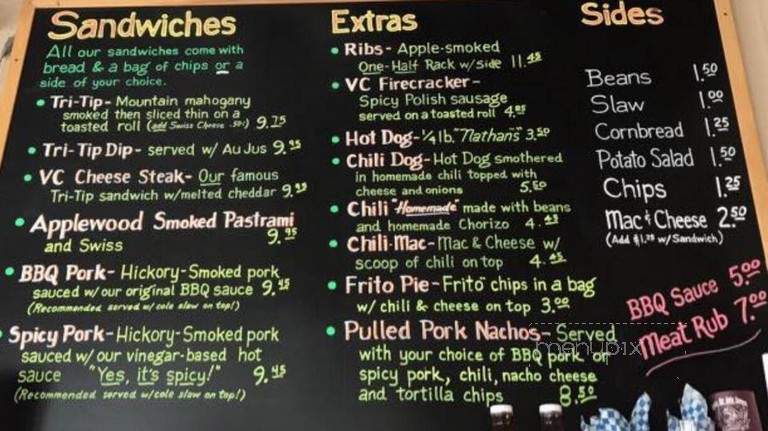 Sandwiches
All our sandwiches come with
bread & a bag of chips or a
side of your choice.
• Tri-Tip - Mountain mahogany
smoked then sliced thin on a
toasted roll (add Swiss Cheese .50¢) 9.75
• Tri-Tip Dip - served w/ Au Jus 9.95
• VC Cheese Steak - Our famous
Tri-Tip sandwich w/melted cheddar 9.95
• Applewood Smoked Pastrami
and Swiss 9.95
• BBQ Pork - Hickory-Smoked pork
sauced w/our original BBQ sauce 9.45
(Recommended served w/cole slaw on top!)
• Spicy Pork - Hickory-Smoked pork
sauced w/our vinegar-based hot
sauce "Yes, it's spicy!" 9.45
(Recommended served w/cole slaw on top!)
Extras
• Ribs - Apple-smoked
One-Half Rack w/side 11.45
• VC Firecracker -
Spicy Polish sausage
served on a toasted roll 4.85
• Hot Dog - 1/4 lb. "Nathan's" 3.50
• Chili Dog - Hot Dog smothered
in homemade chili topped with
cheese and onions 5.50
• Chili "Homemade" made with beans
and homemade Chorizo 4.45
• Chili-Mac - Mac & Cheese w/
scoop of chili on top 4.45
• Frito Pie - Frito chips in a bag
w/ chili & cheese on top 3.00
• Pulled Pork Nachos - Served
with your choice of BBQ pork or
spicy pork, chili, nacho cheese
and tortilla chips 8.50
Sides
Beans 1.50
Slaw 1.00
Cornbread 1.25
Potato Salad 1.50
Chips 1.25
Mac & Cheese 2.50
(Add $1.25 w/Sandwich)
BBQ Sauce 5.00
Meat Rub 7.00
menupix